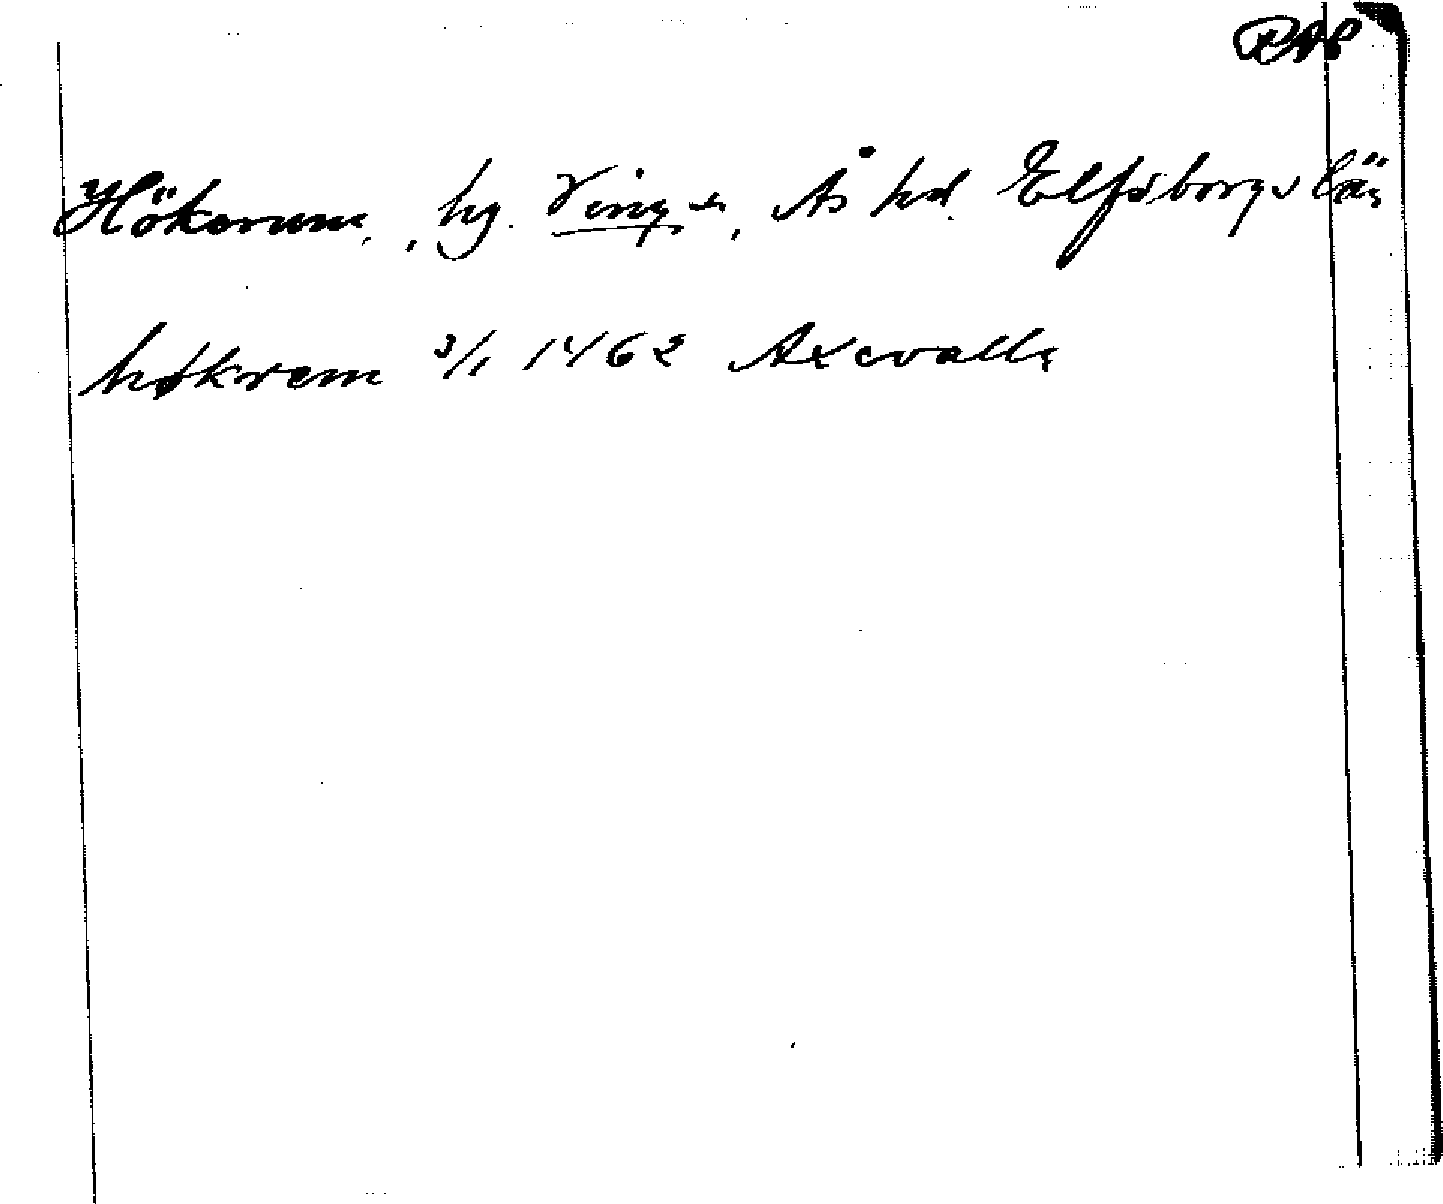 RAP
Hökerum, by. Ving s, Ås hd. Elfsborgs län
høkrem 3/1 1462 Axevalla